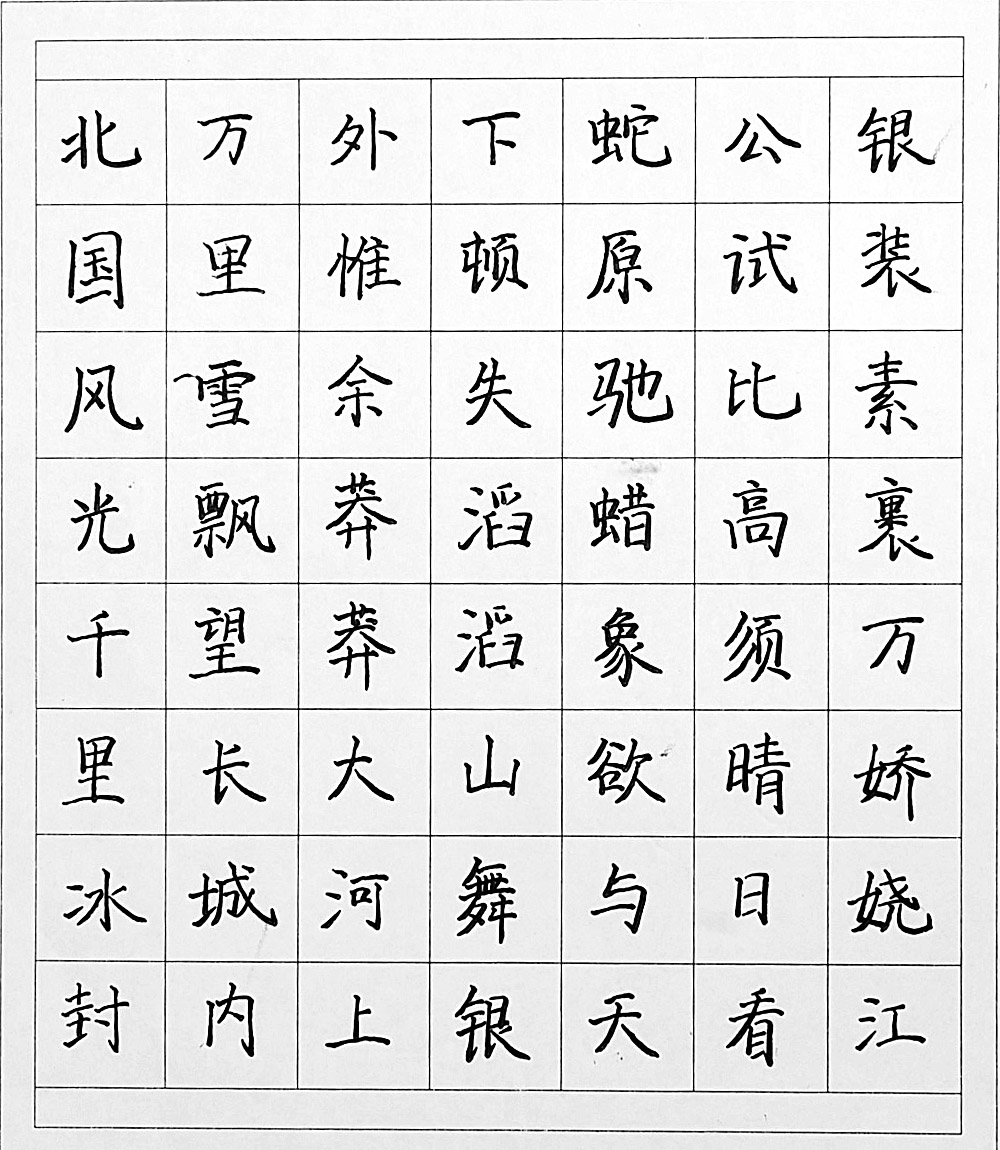 北国风光千里冰封
万里雪飘望长城内
外惟余莽莽大河上
下顿失滔滔山舞银
蛇原驰蜡象欲与天
公试比高须晴日看
银装素裹万娇娆江